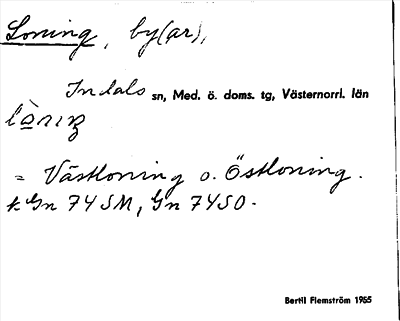 Loning, by(ar),
Indals sn, Med. ö. doms. tg, Västernorrl. län
= Västloning o. Östloning.
k Gn 74 SM, Gn 74 SO.
Bertil Flemström 1965